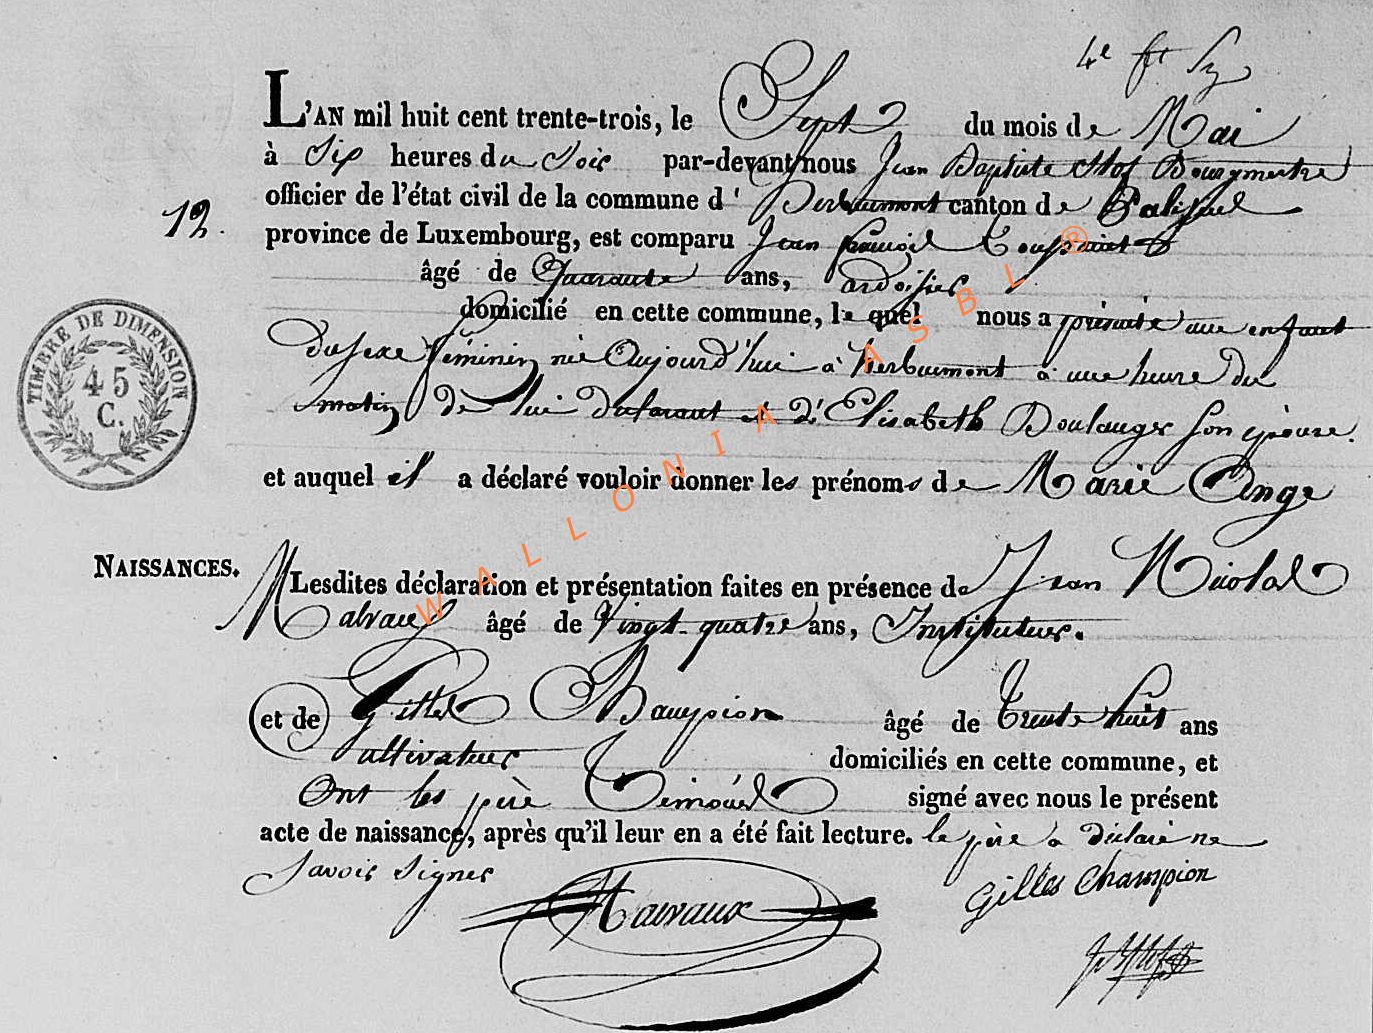 4e
L'AN mil huit cent trente-trois, le Sept du mois de Mai
à Six heures du Soir par-devant nous Jean Baptiste Bourgmestre
officier de l'état civil de la commune d' Herbeumont canton de Paliseul
12. province de Luxembourg, est comparu Jean françois Toussaint
âgé de Quarante ans, ardoisier
domicilié en cette commune, le quel nous a présenté une enfant
TIMBRE DE DIMENSION
45 C.
du sexe féminin née Aujourd'hui à herbeumont à une heure du
matin de lui déclarant et d'Elisabeth Boulanger son épouse.
et auquel il a déclaré vouloir donner les prénoms de Marie Ange
NAISSANCES.
Lesdites déclaration et présentation faites en présence de Jean Nicolas
Malvaux âgé de Vingt-quatre ans, Instituteur.
et de Gilles Champion âgé de Trente huit ans
Cultivateur domiciliés en cette commune, et
Ont les père Témoins signé avec nous le présent
acte de naissance, après qu'il leur en a été fait lecture. le père a déclaré ne
Savoir Signer
Malvaux
Gilles Champion
WALLONIA ASBL ®